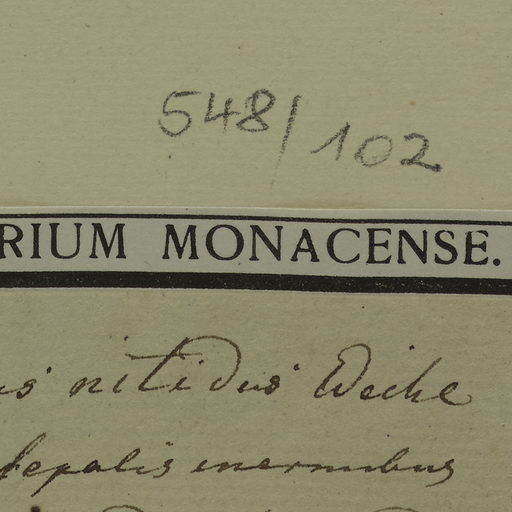 548/102
RIUM MONACENSE.
us nitidus Weihe
sepalis inermibus